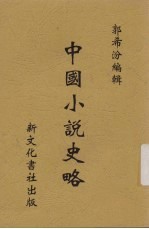 郭希汾編輯
中國小說史略
新文化書社出版